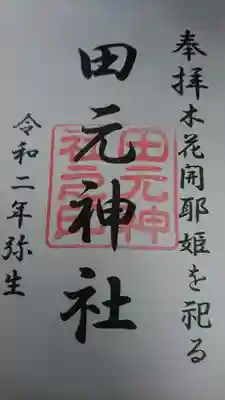 奉拝木花開耶姫を祀る
田元神社
令和二年弥生